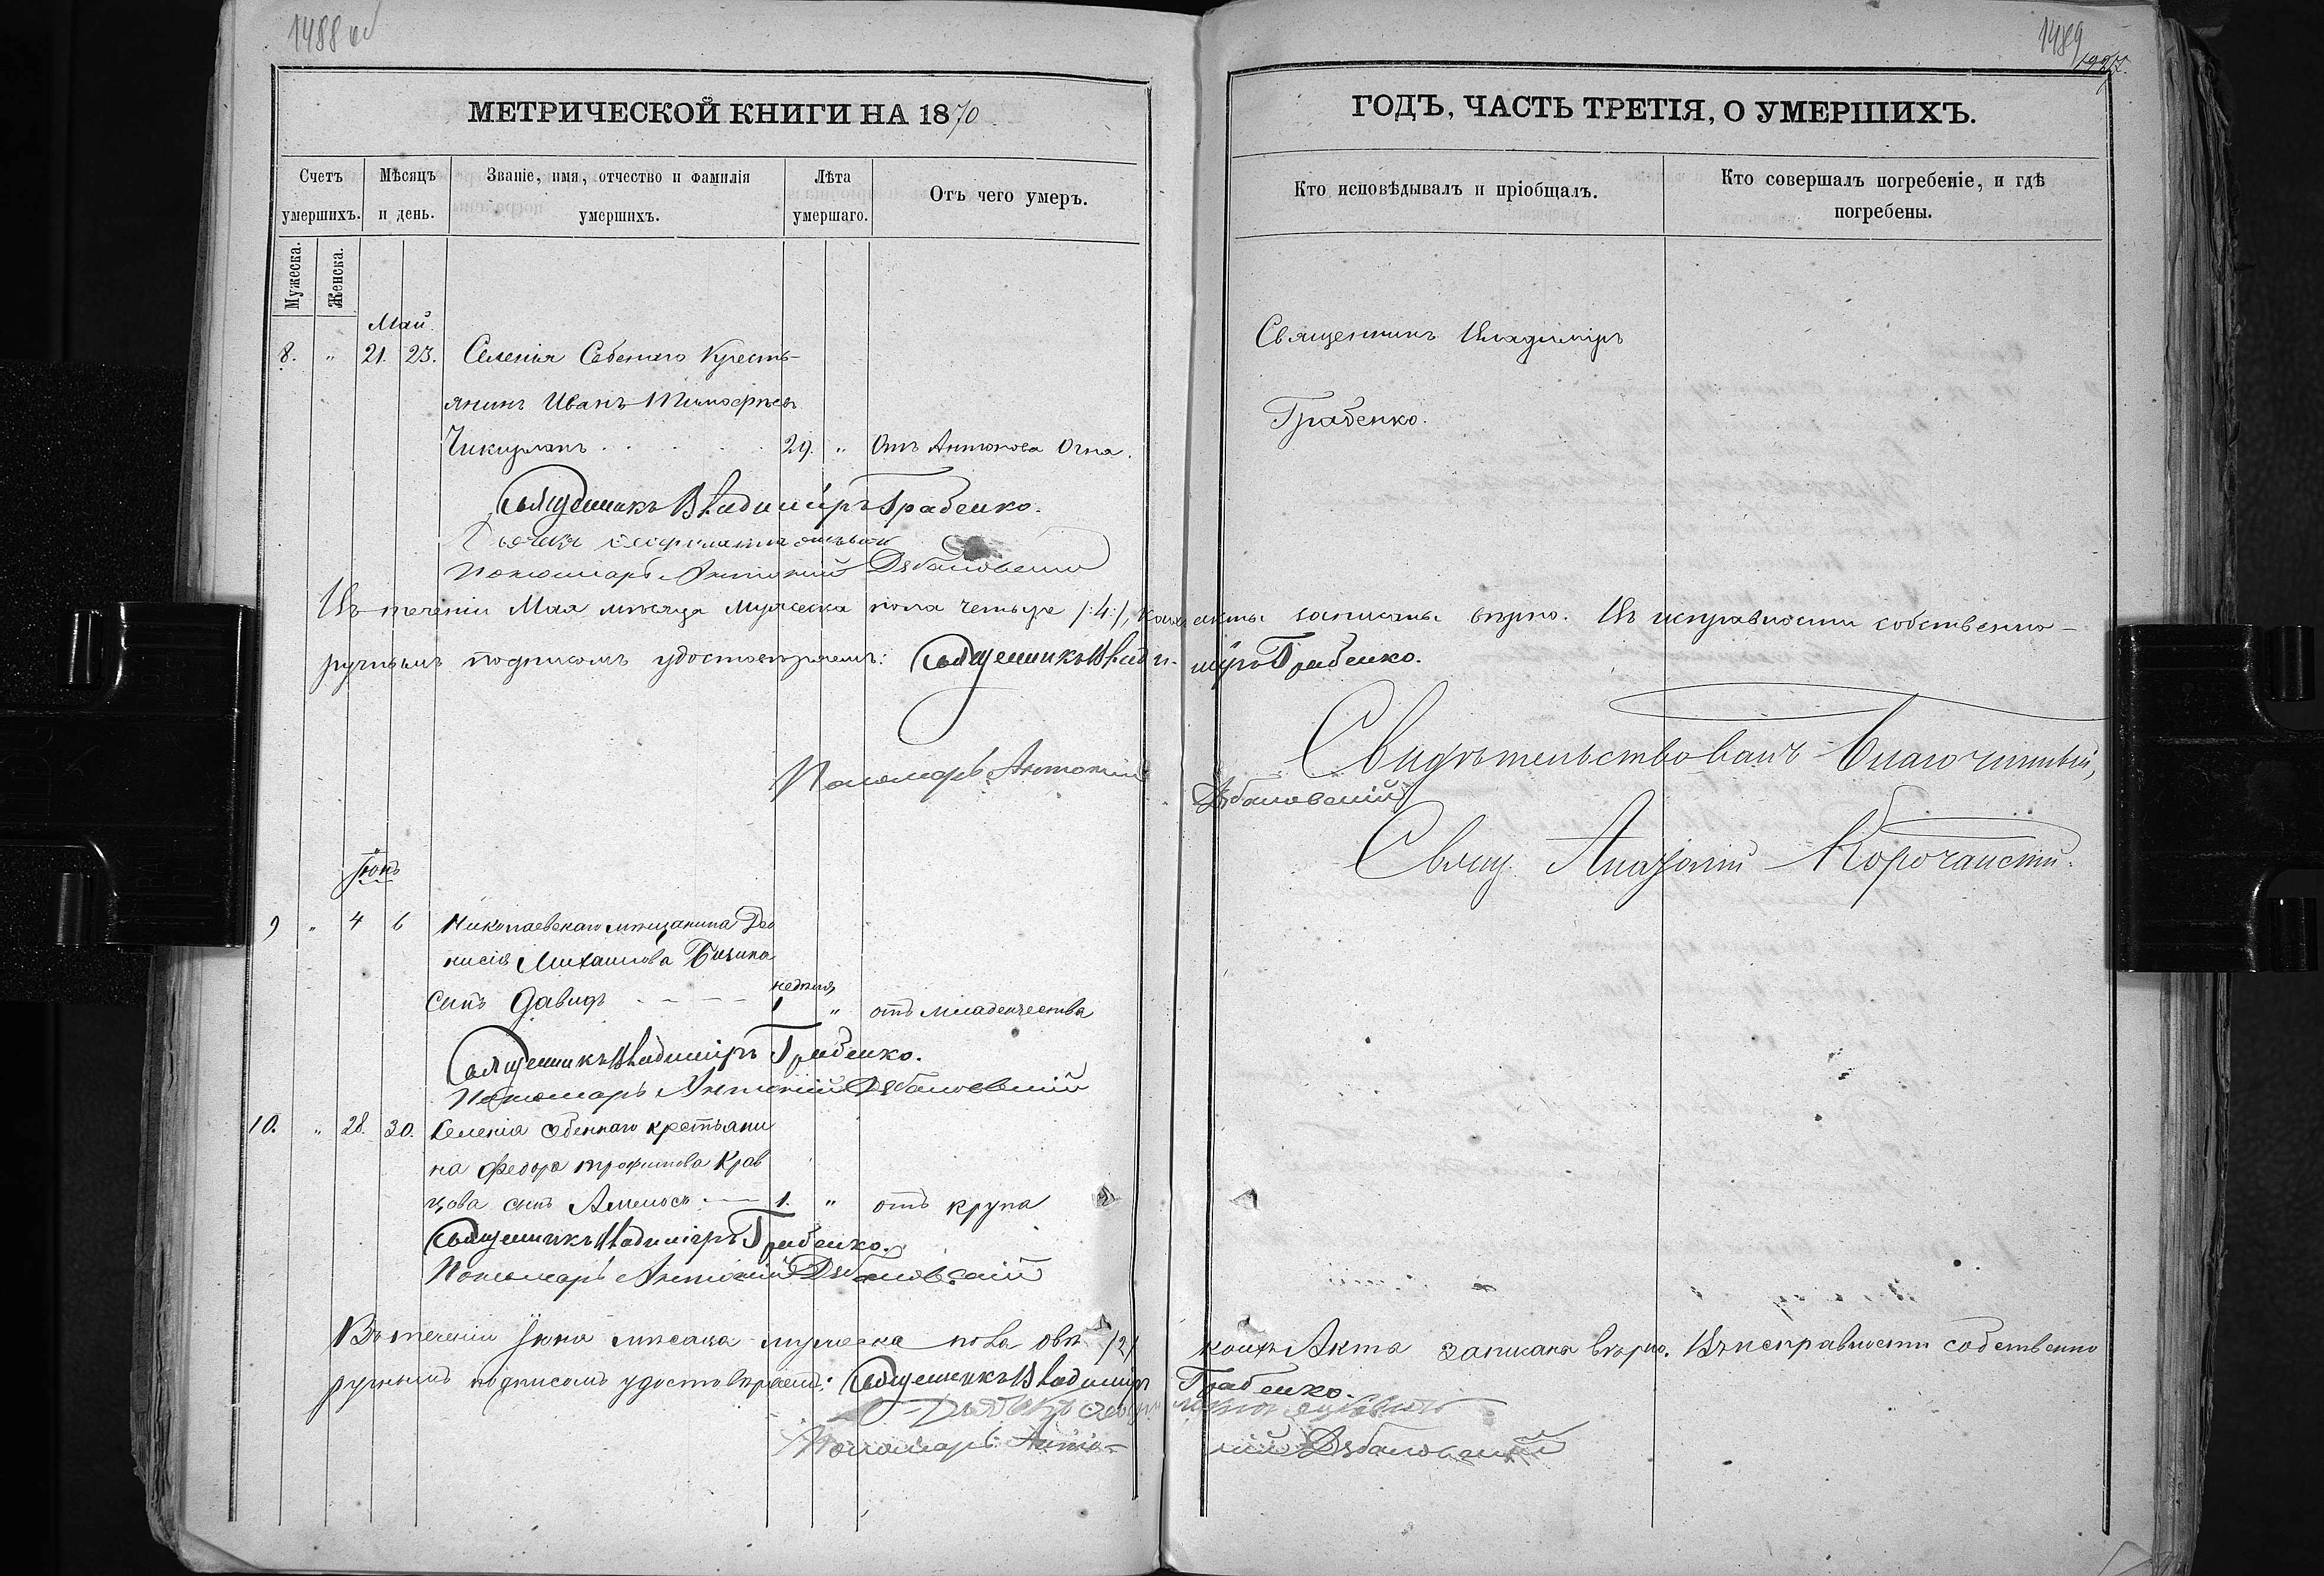 1488 об
МЕТРИЧЕСКОЙ КНИГИ НА 1870
Счетъ умершихъ.
Мѣсяцъ и день.
Званіе, имя, отчество и фамилія умершихъ.
Лѣта умершаго.
Отъ чего умеръ.
Мужеска.
Женска.
Май
8. " 21. 23. Селенія Себенаго Кресть-
янинъ Иванъ Тимоѳеевъ
29. " Отъ Антонова Огня.
Священникъ Владиміръ Грабенко.
Пономарь Антоній Дзбановскій
Въ теченіи Мая мѣсяца мужеска пола четыре /:4:/, коихъ
ручнымъ подписомъ удостовѣряемъ: Священникъ Влади-
Пономарь Антоній
Іюнь
9 " 4 6 Николаевскаго мѣщанина Діо
нисія Михаилова
сынъ Давидъ недѣля 1 " отъ младенчества
Священникъ Владиміръ Грабенко.
Пономарь Антоній Дзбановскій
10. " 28. 30. Селенія крестьяни
на Федора Трофимова Крав
цова сынъ 1. " отъ крупа
Священникъ Владиміръ Грабенко.
Пономарь Антоній Дзбановскій
Въ теченіи Іюня мѣсяца мужеска пола два /2/
ручнымъ подписомъ удостовѣряемъ: Священникъ Владиміръ
Дьячекъ
Пономарь Анто-
1489
ГОДЪ, ЧАСТЬ ТРЕТІЯ, О УМЕРШИХЪ.
Кто исповѣдывалъ и пріобщалъ.
Кто совершалъ погребеніе, и гдѣ погребены.
Священникъ Владиміръ
Грабенко.
акты записаны вѣрно. Въ исправности собственно-
міръ Грабенко.
Свидѣтельствовалъ Благочинный,
Дзбановскій
Свящ.
коихъ Акта записаны вѣрно. Въ исправности собственно
Грабенко.
ній Дзбановскій